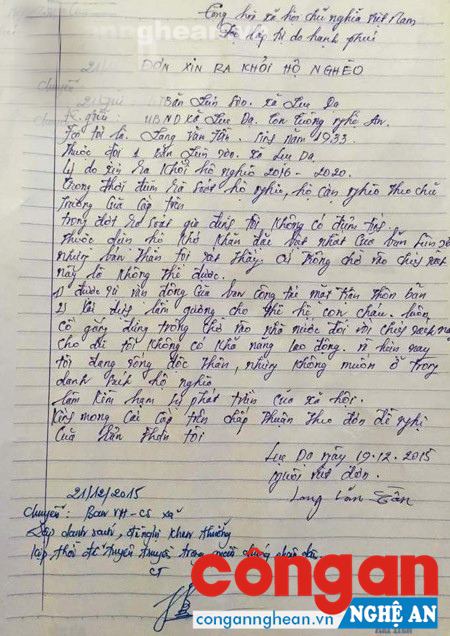 conganngheăn.vn
Cộng hòa xã hội chủ nghĩa Việt Nam
Độc lập tự do hạnh phúc
ĐƠN XIN RA KHỎI HỘ NGHÈO
Bản xã Lưu Da
UBND xã Lưu Da, Tương nghệ An.
Tôi tên là. Lang Văn Tấn. Sinh năm 1933.
Thuộc đội 1 bản xã Lưu Da.
Lý do xin ra khỏi hộ nghèo 2016 - 2020.
trong thời điểm rà soát hộ nghèo, hộ cận nghèo theo chủ
trương của cấp trên
trong đợt rà soát gia đình tôi không có điểm
thuộc diện hộ khó khăn đặc biệt nhất của bản
nhưng bản thân tôi thấy cứ trông chờ vào
này là không thể được.
1) được sự vận động của ban công tác mặt trận thôn bản
2) làm gương cho thế hệ con cháu. luôn
cố gắng đừng trông chờ vào nhà nước đối với
cho dù tôi không có khả năng lao động. hiện nay
tôi đang sống độc thân, nhưng không muốn ở trong
danh sách hộ nghèo
làm kìm hạm sự phát triển của xã hội.
Kính mong các cấp trên chấp thuận theo đơn đề nghị
của bản thân tôi
Lưu Da ngày 19.12.2015
người viết đơn.
Lang Văn Tấn
21/12/2015
chuyển: Ban VH-CS xã
Lập danh sách, đề nghị khen thưởng
CT
congan
NGHỆ AN
congannghean.vn